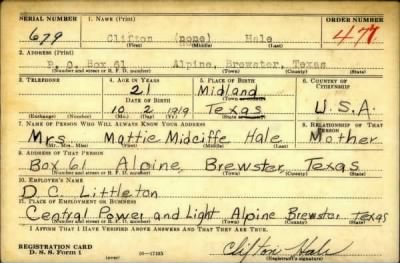 SERIAL NUMBER 1. NAME (Print) ORDER NUMBER
679 Clifton (none) Hale 477
(First) (Middle) (Last)
2. ADDRESS (Print)
P. O. Box 61 Alpine, Brewster, Texas
(Number and street or R. F. D. number) (Town) (County) (State)
3. TELEPHONE 4. AGE IN YEARS 5. PLACE OF BIRTH 6. COUNTRY OF CITIZENSHIP
21 Midland
DATE OF BIRTH (Town or county)
10 2 1919 Texas U.S.A.
(Exchange) (Number) (Mo.) (Day) (Yr.) (State or country)
7. NAME OF PERSON WHO WILL ALWAYS KNOW YOUR ADDRESS 8. RELATIONSHIP OF THAT PERSON
Mrs. Mattie Midciffe Hale Mother
(Mr., Mrs., Miss) (First) (Middle) (Last)
9. ADDRESS OF THAT PERSON
Box 61 Alpine, Brewster, Texas
(Number and street or R. F. D. number) (Town) (County) (State)
10. EMPLOYER'S NAME
D. C. Littleton
11. PLACE OF EMPLOYMENT OR BUSINESS
Central Power and Light Alpine Brewster Texas
(Number and street or R. F. D. number) (Town) (County) (State)
I AFFIRM THAT I HAVE VERIFIED ABOVE ANSWERS AND THAT THEY ARE TRUE.
REGISTRATION CARD
D. S. S. Form 1 (over) 16-17105 Clifton Hale
(Registrant's signature)